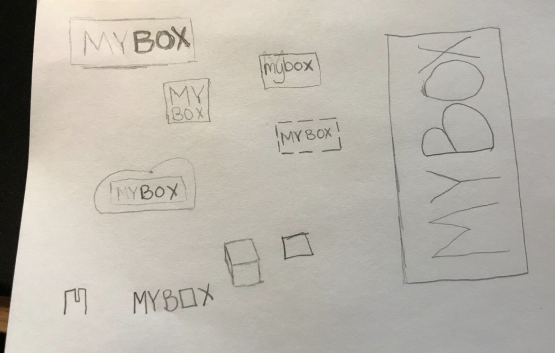 MYBOX
mybox
MY
BOX
MYBOX
MYBOX
MYBOX
M
MYBOX